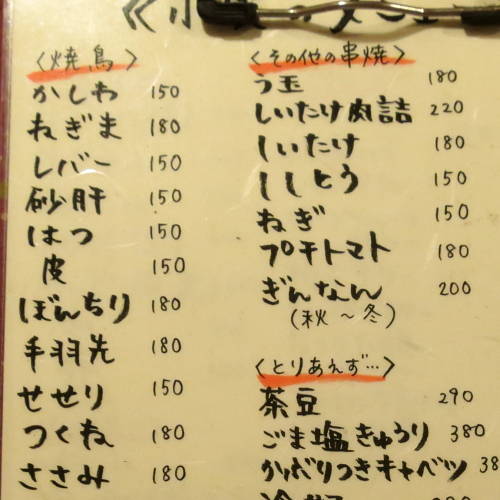 〈焼鳥〉
かしわ 150
ねぎま 180
レバー 150
砂肝 150
はつ 150
皮 150
ぼんちり 180
手羽先 180
せせり 150
つくね 180
ささみ 180
〈その他の串焼〉
う玉 180
しいたけ肉詰 220
しいたけ 180
ししとう 150
ねぎ 150
プチトマト 180
ぎんなん 200
(秋～冬)
〈とりあえず…〉
茶豆 290
ごま塩きゅうり 380
かつぶりつきキャベツ 38